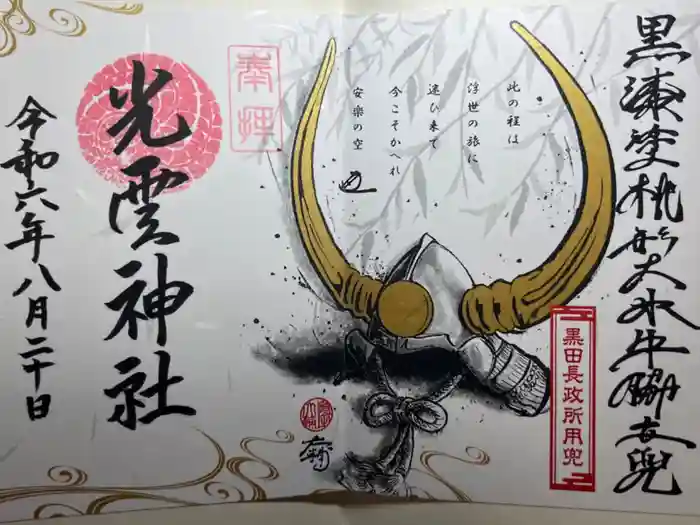 黒漆塗桃形大水牛脇立兜
黒田長政所用兜
此の程は
浮世の旅に
迷ひ来て
今こそかへれ
安楽の空
奉拝
光雲神社
令和六年八月二十日